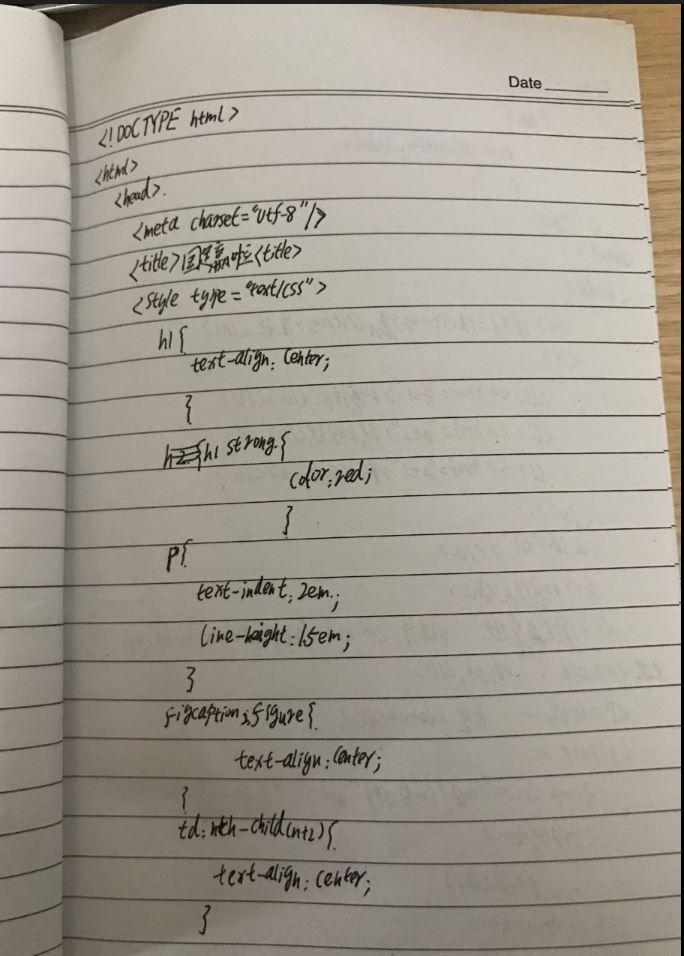 Date
<!DOCTYPE html>
<html>
<head>.
<meta charset="utf-8"/>
<title>国足赢啦<title>
<style type="text/css">
h1{
text-align: center;
}
h1 strong.{
color:red;
}
p{
text-indent: 2em;
line-height: 1.5em;
}
figcaption,figure{
text-align: center;
}
td:nth-child(n+2){
text-align: center;
}